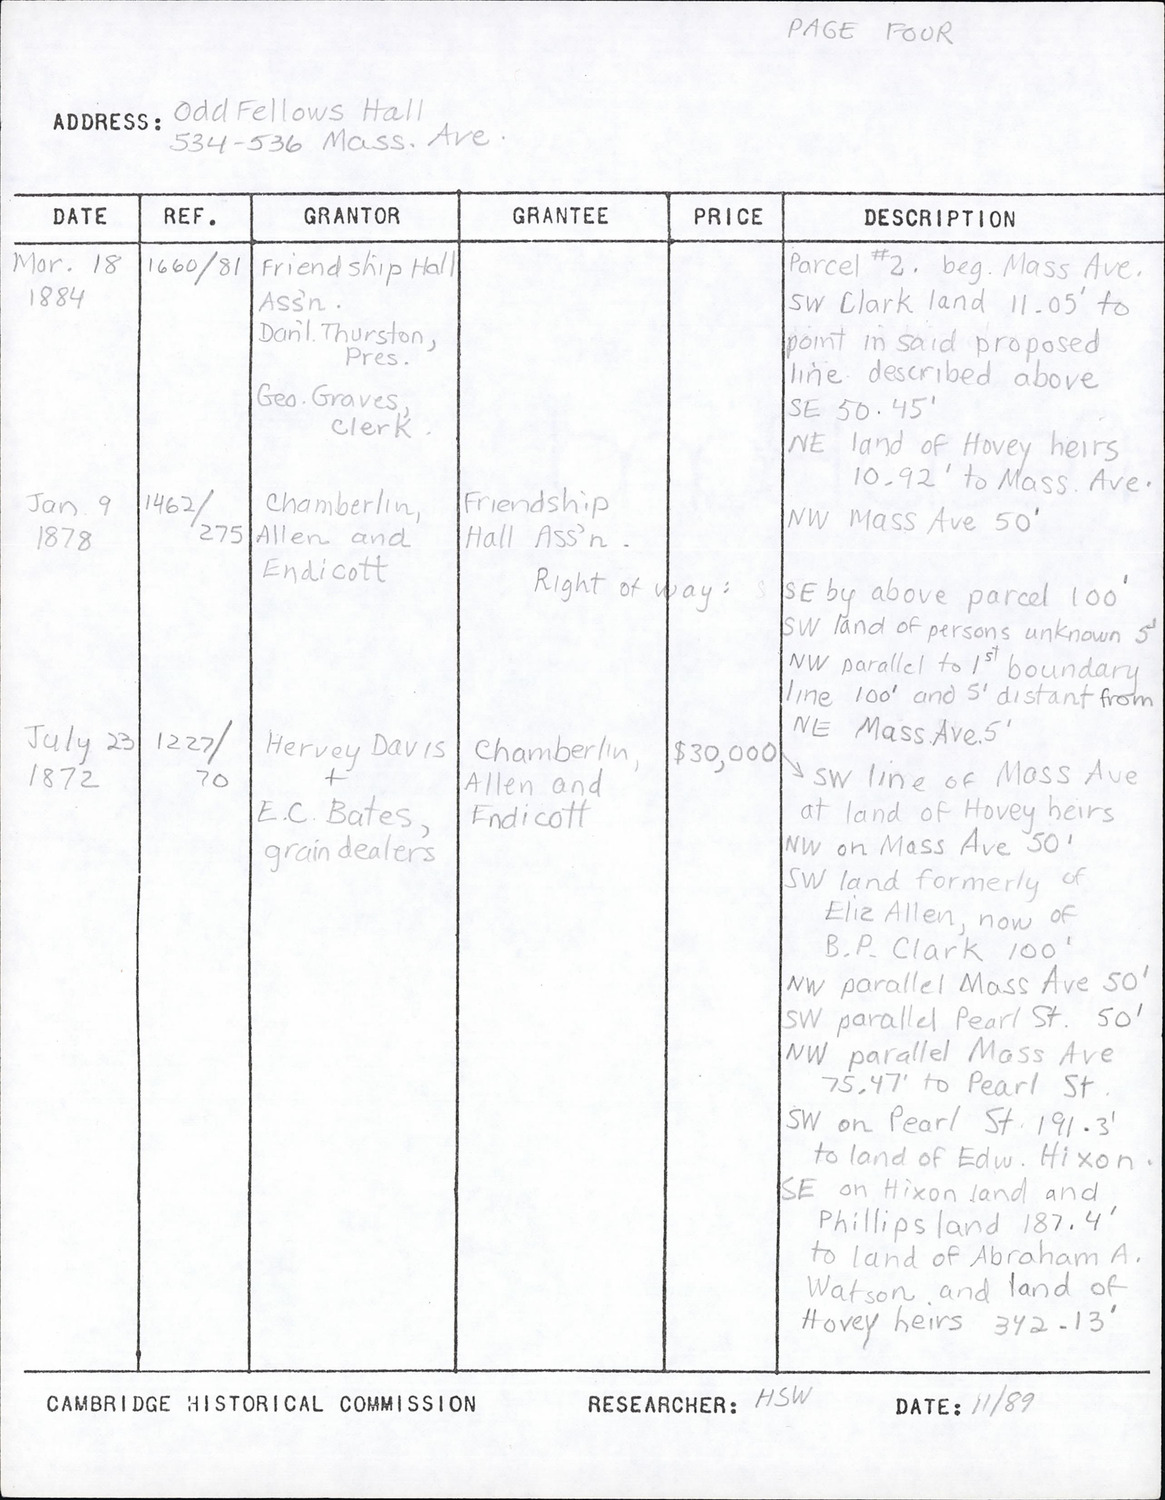 PAGE FOUR
ADDRESS: Odd Fellows Hall
534-536 Mass. Ave.
DATE REF. GRANTOR GRANTEE PRICE DESCRIPTION
Mar. 18
1884
1660/81
Friendship Hall
Ass'n.
Dan'l. Thurston,
Pres.
Geo. Graves,
clerk.
Parcel #2. beg. Mass Ave.
SW Clark land 11.05' to
point in said proposed
line described above
SE 50.45'
NE land of Hovey heirs
10.92' to Mass. Ave.
NW Mass Ave 50'
Jan. 9
1878
1462/
275
Chamberlin,
Allen and
Endicott
Friendship
Hall Ass'n.
Right of way:
SE by above parcel 100'
SW land of persons unknown 5'
NW parallel to 1st boundary
line 100' and 5' distant from
NE Mass. Ave. 5'
July 23
1872
1227/
70
Hervey Davis
+
E.C. Bates,
grain dealers
Chamberlin,
Allen and
Endicott
$30,000
SW line of Mass Ave
at land of Hovey heirs
NW on Mass Ave 50'
SW land formerly of
Eliz Allen, now of
B.P. Clark 100'
NW parallel Mass Ave 50'
SW parallel Pearl St. 50'
NW parallel Mass Ave
75.47' to Pearl St.
SW on Pearl St. 191.3'
to land of Edw. Hixon.
SE on Hixon land and
Phillips land 187.4'
to land of Abraham A.
Watson and land of
Hovey heirs 342.13'
CAMBRIDGE HISTORICAL COMMISSION RESEARCHER: HSW DATE: 11/89